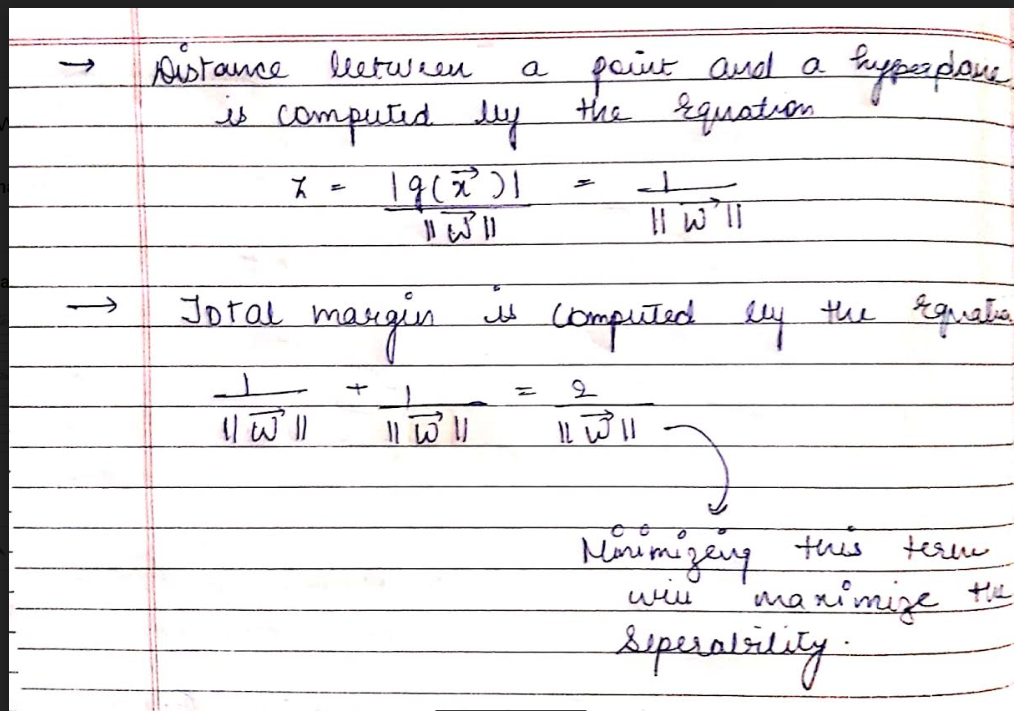 → Distance between a point and a hyperplane
is computed by the equation
z = |g(x⃗)| / ||w⃗|| = 1 / ||w⃗||
→ Total margin is computed by the equatio
1 / ||w⃗|| + 1 / ||w⃗|| = 2 / ||w⃗||
Minimizing this term
will maximize the
seperability.